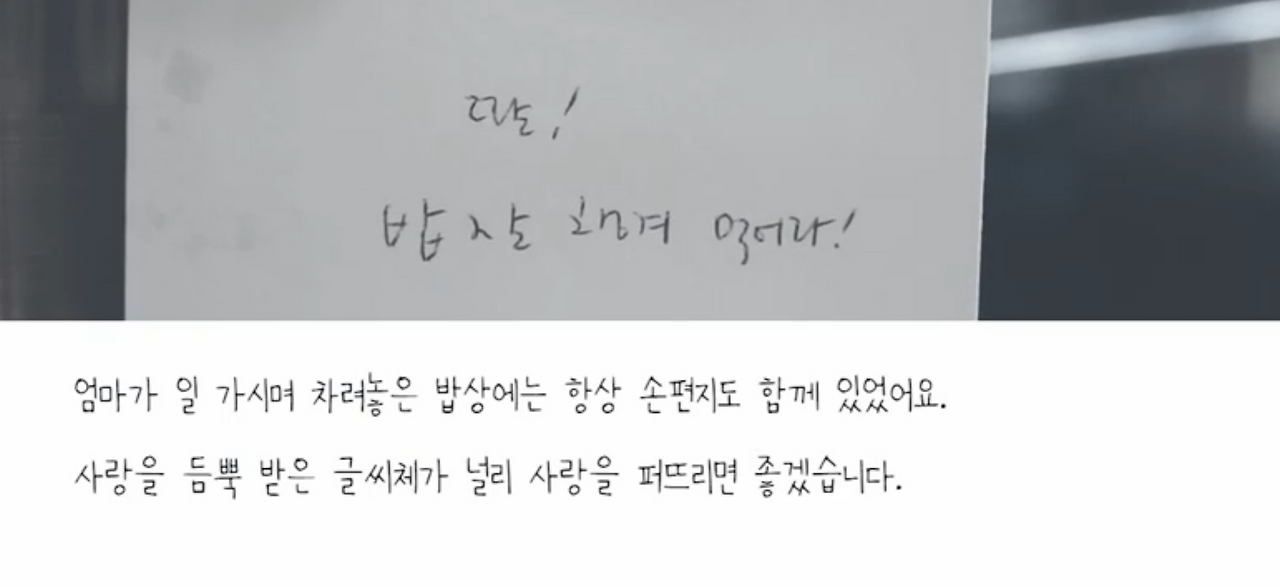 딸!
밥 잘 챙겨 먹어라!
엄마가 일 가시며 차려놓은 밥상에는 항상 손편지도 함께 있었어요.
사랑을 듬뿍 받은 글씨체가 널리 사랑을 퍼뜨리면 좋겠습니다.